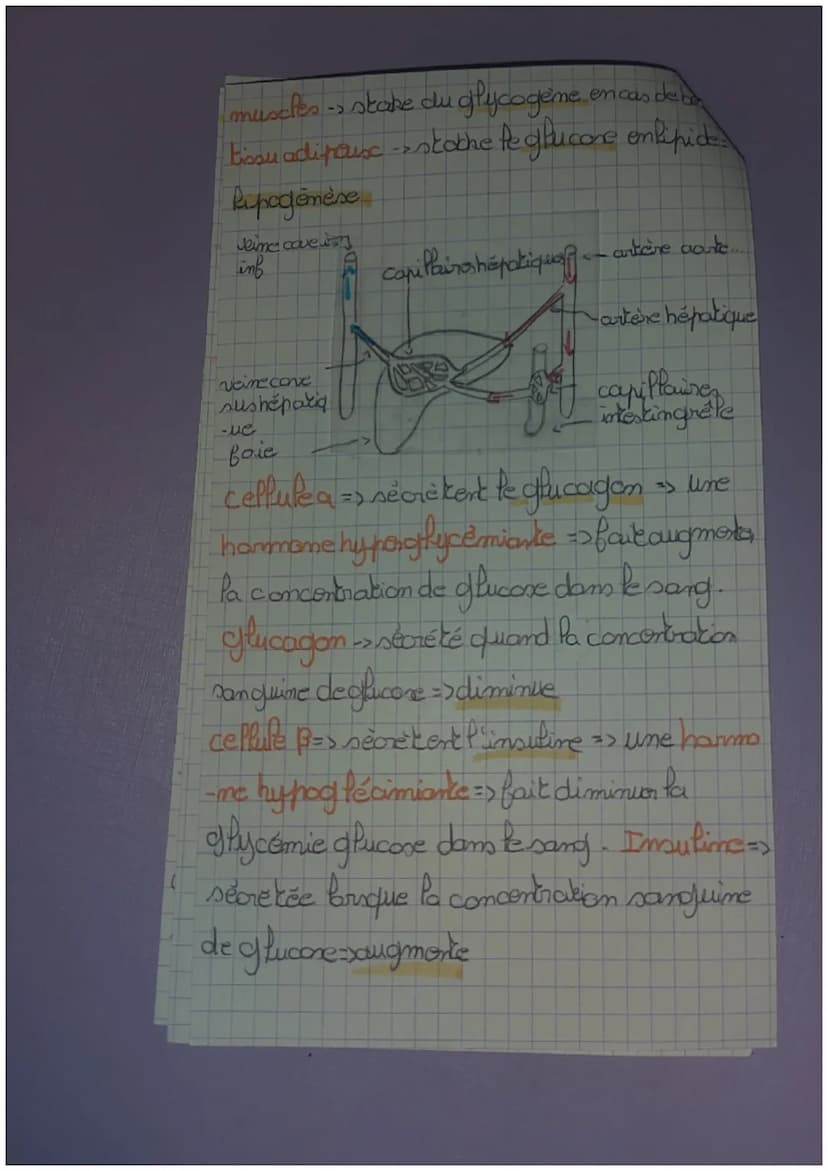 muscles -> stoke du glycogène en cas de
tissu adipeux -> stocke le glucose en lipide =
lipogénèse
veine cave
inf
capillaires hépatiques
artère aorte...
artère hépatique
veine cave
sushépatiq
-ue
foie
capillaires
intestin grêle
cellule a => sécrètent le glucagon => une
hormone hyperglycémiante => fait augmenter
la concentration de glucose dans le sang.
glucagon -> sécrété quand la concentration
sanguine de glucose => diminue
cellule β => sécrètent l'insuline => une hormo
-ne hypoglécimiante => fait diminuer la
glycémie glucose dans le sang. Insuline =>
sécrétée lorsque la concentration sanguine
de glucose => augmente